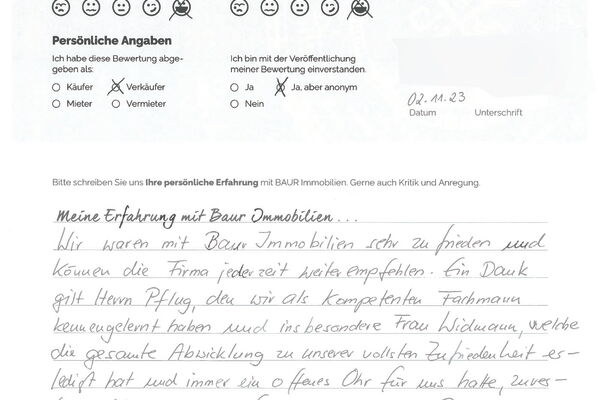 Persönliche Angaben
Ich habe diese Bewertung abge-
geben als:
Käufer
Verkäufer
Mieter
Vermieter
Ich bin mit der Veröffentlichung
meiner Bewertung einverstanden.
Ja
Ja, aber anonym
Nein
02.11.23
Datum
Unterschrift
Bitte schreiben Sie uns Ihre persönliche Erfahrung mit BAUR Immobilien. Gerne auch Kritik und Anregung.
Meine Erfahrung mit Baur Immobilien...
Wir waren mit Baur Immobilien sehr zu frieden und
können die Firma jederzeit weiterempfehlen. Ein Dank
gilt Herrn Pflug, den wir als kompetenten Fachmann
kennengelernt haben und insbesondere Frau Widmann, welche
die gesamte Abwicklung zu unserer vollsten Zufriedenheit er-
ledigt hat und immer ein offenes Ohr für uns hatte, zuver-